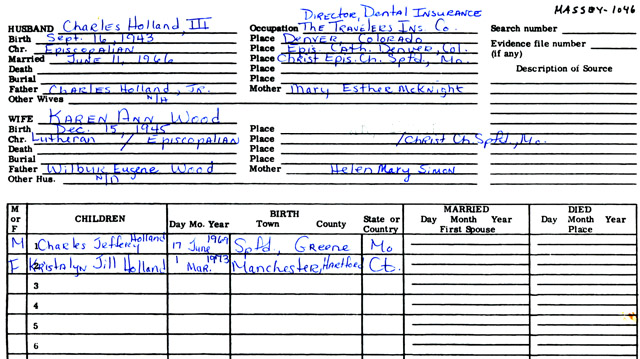 MASSEY-1046
Director, Dental Insurance
HUSBAND Charles Holland, III Occupation The Travelers Ins. Co. Search number
Birth Sept. 16, 1943 Place Denver, Colorado
Chr. Episcopalian Place Epis. Cath. Denver, Col. Evidence file number
Married June 11, 1966 Place Christ Epis. Ch. Spfd., Mo. (if any)
Death Place Description of Source
Burial Place
Father Charles Holland, Jr. Mother Mary Esther McKnight
Other Wives N/A
WIFE Karen Ann Wood
Birth Dec. 15, 1945 Place
Chr. Lutheran / Episcopalian Place /Christ Ch. Spfd., Mo.
Death Place
Burial Place
Father Wilbur Eugene Wood Mother Helen Mary Simon
Other Hus. N/A
M or F CHILDREN BIRTH MARRIED DIED
Day Mo. Year Town County State or Country Day Month Year First Spouse Day Month Year Place
M 1 Charles Jeffery Holland 17 June 1969 Spfd., Greene Mo
F 2 Kristalyn Jill Holland 1 Mar. 1973 Manchester, Hartford Ct.
3
4
5
6